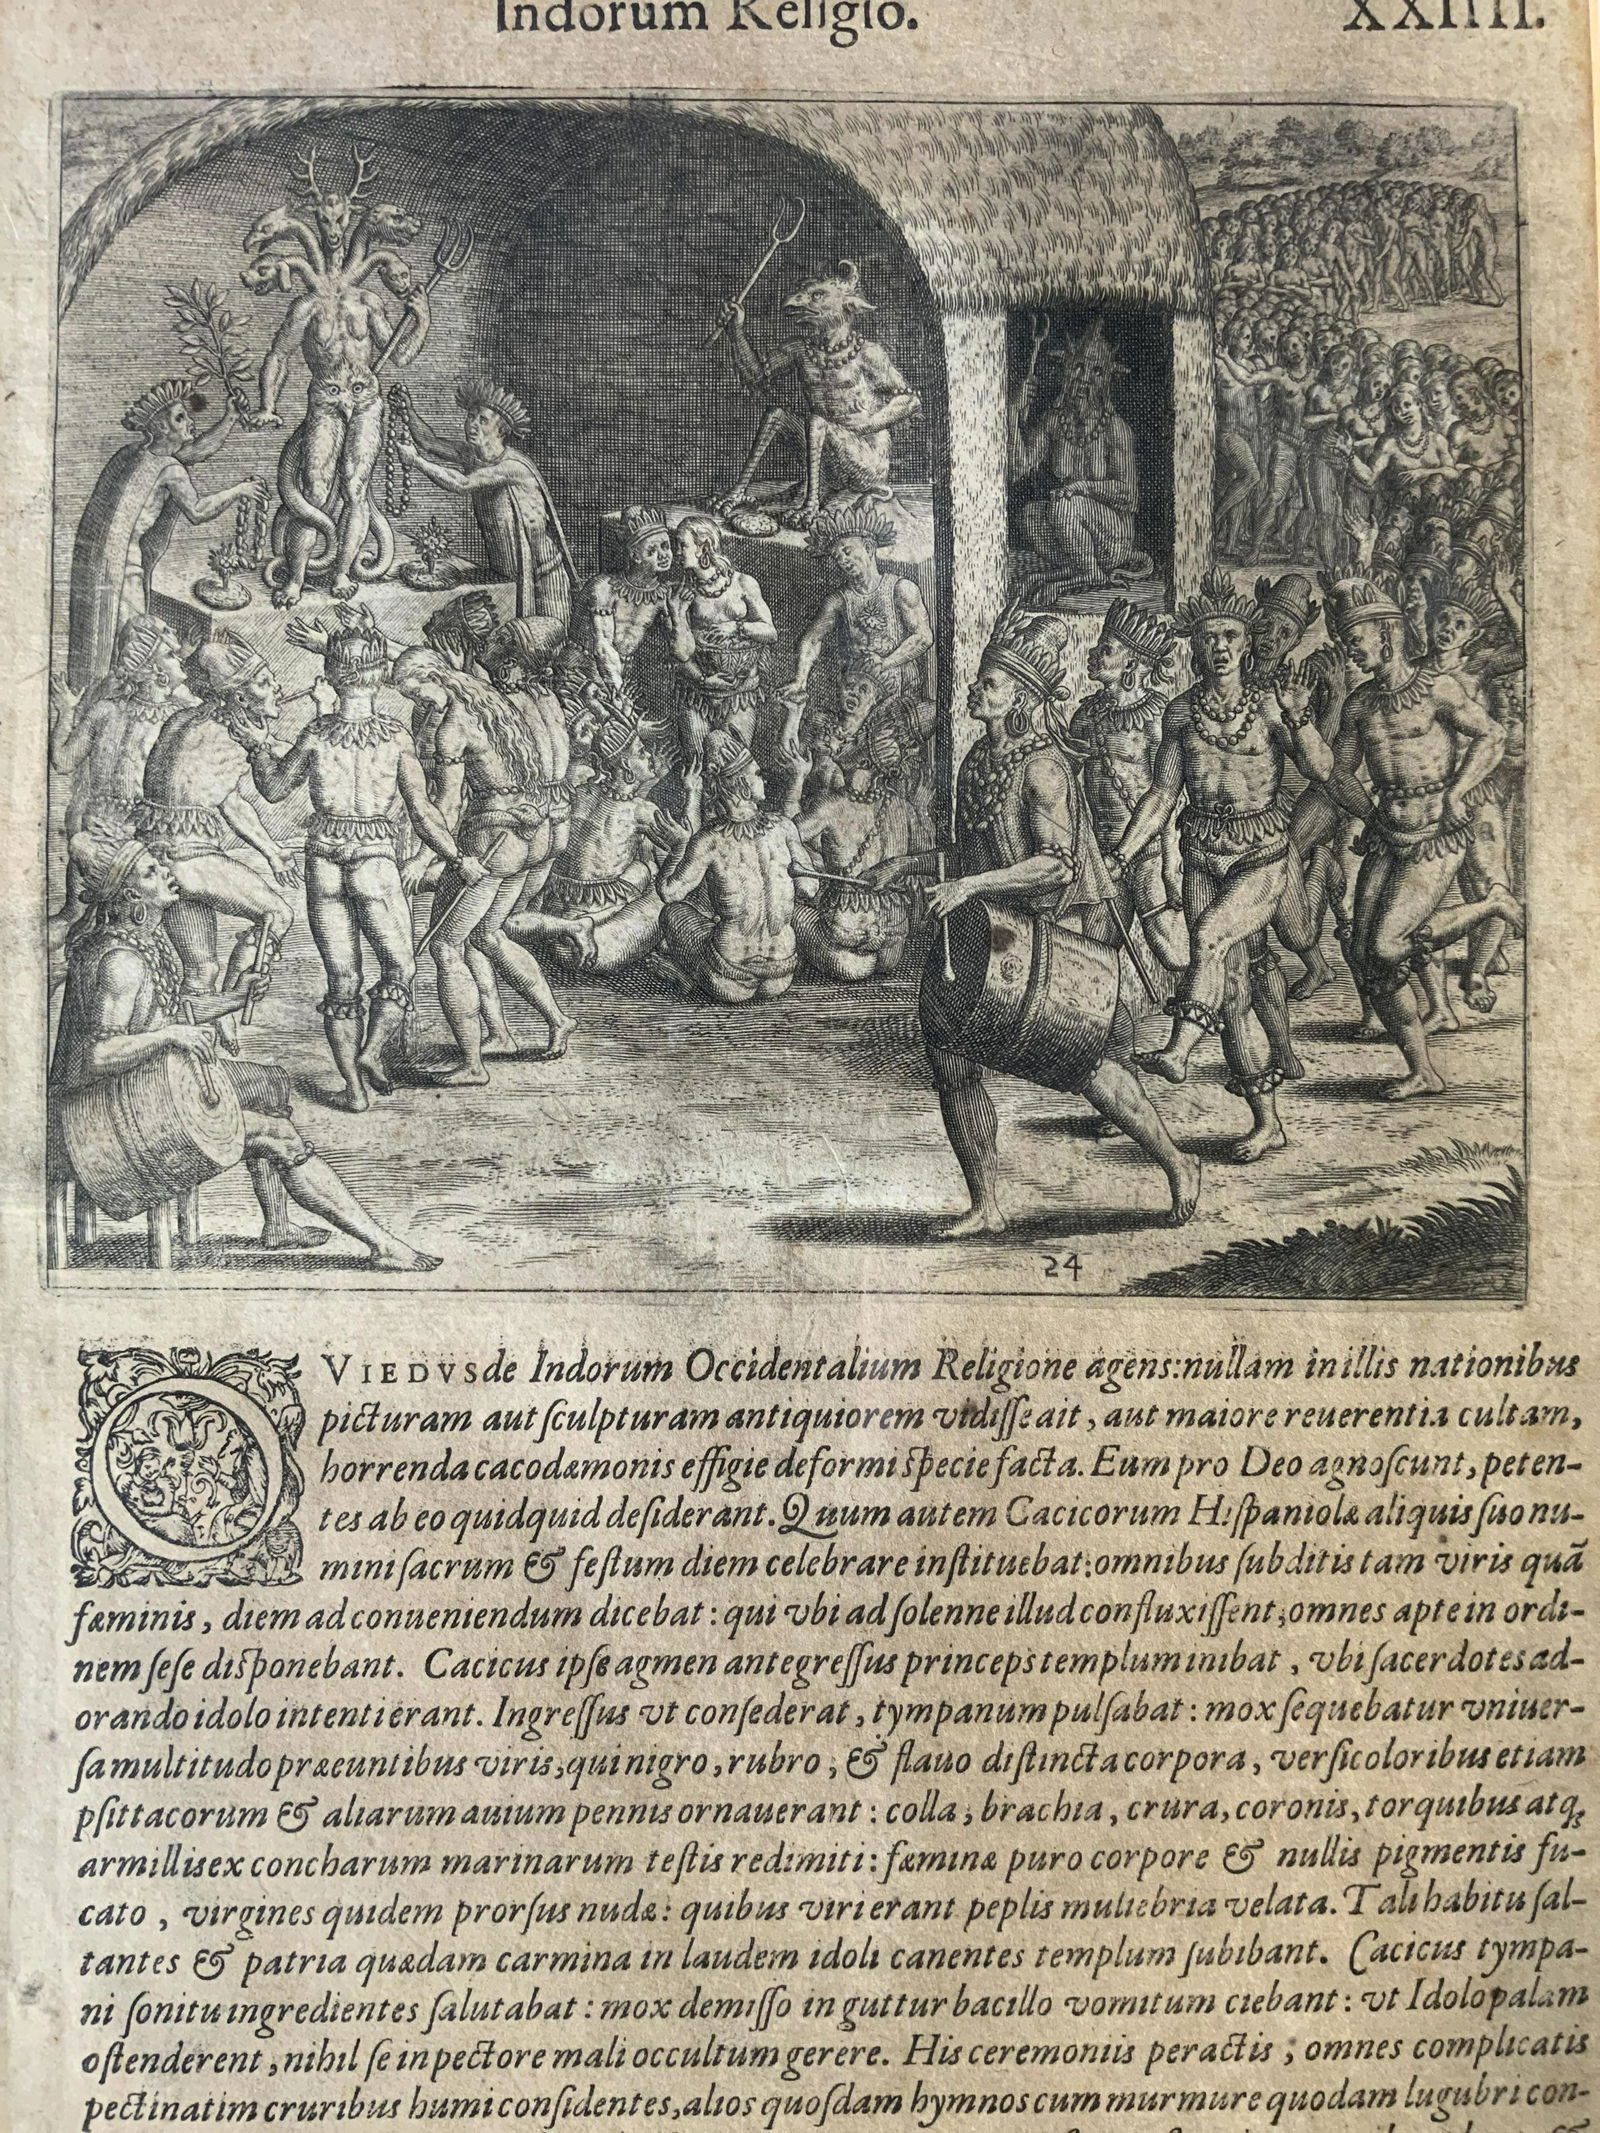 Indorum Religio. XXIIII.
24
OVIEDVS de Indorum Occidentalium Religione agens: nullam in illis nationibus
picturam aut ſculpturam antiquiorem vidiſſe ait, aut maiore reuerentia cultam,
horrenda cacodæmonis effigie deformi ſpecie facta. Eum pro Deo agnoſcunt, peten-
tes ab eo quidquid deſiderant. Quum autem Cacicorum Hiſpaniolæ aliquis ſuo nu-
mini ſacrum & feſtum diem celebrare inſtituebat: omnibus ſubditis tam viris quã
fæminis, diem ad conueniendum dicebat: qui vbi ad ſolenne illud confluxiſſent, omnes apte in ordi-
nem ſeſe diſponebant. Cacicus ipſe agmen antegreſſus princeps templum inibat, vbi ſacerdotes ad-
orando idolo intenti erant. Ingreſſus vt conſederat, tympanum pulſabat: mox ſequebatur vniuer-
ſa multitudo præeuntibus viris, qui nigro, rubro, & flauo diſtincta corpora, verſicoloribus etiam
pſittacorum & aliarum auium pennis ornauerant: colla, brachia, crura, coronis, torquibus atq;
armillis ex concharum marinarum teſtis redimiti: fæminæ puro corpore & nullis pigmentis fu-
cato, virgines quidem prorſus nudæ: quibus viri erant peplis muliebria velata. Tali habitu ſal-
tantes & patria quædam carmina in laudem idoli canentes templum ſubibant. Cacicus tympa-
ni ſonitu ingredientes ſalutabat: mox demiſſo in guttur bacillo vomitum ciebant: vt Idolo palam
oſtenderent, nihil ſe in pectore mali occultum gerere. His ceremoniis peractis, omnes complicatis
pectinatim cruribus humi conſidentes, alios quoſdam hymnos cum murmure quodam lugubri con-